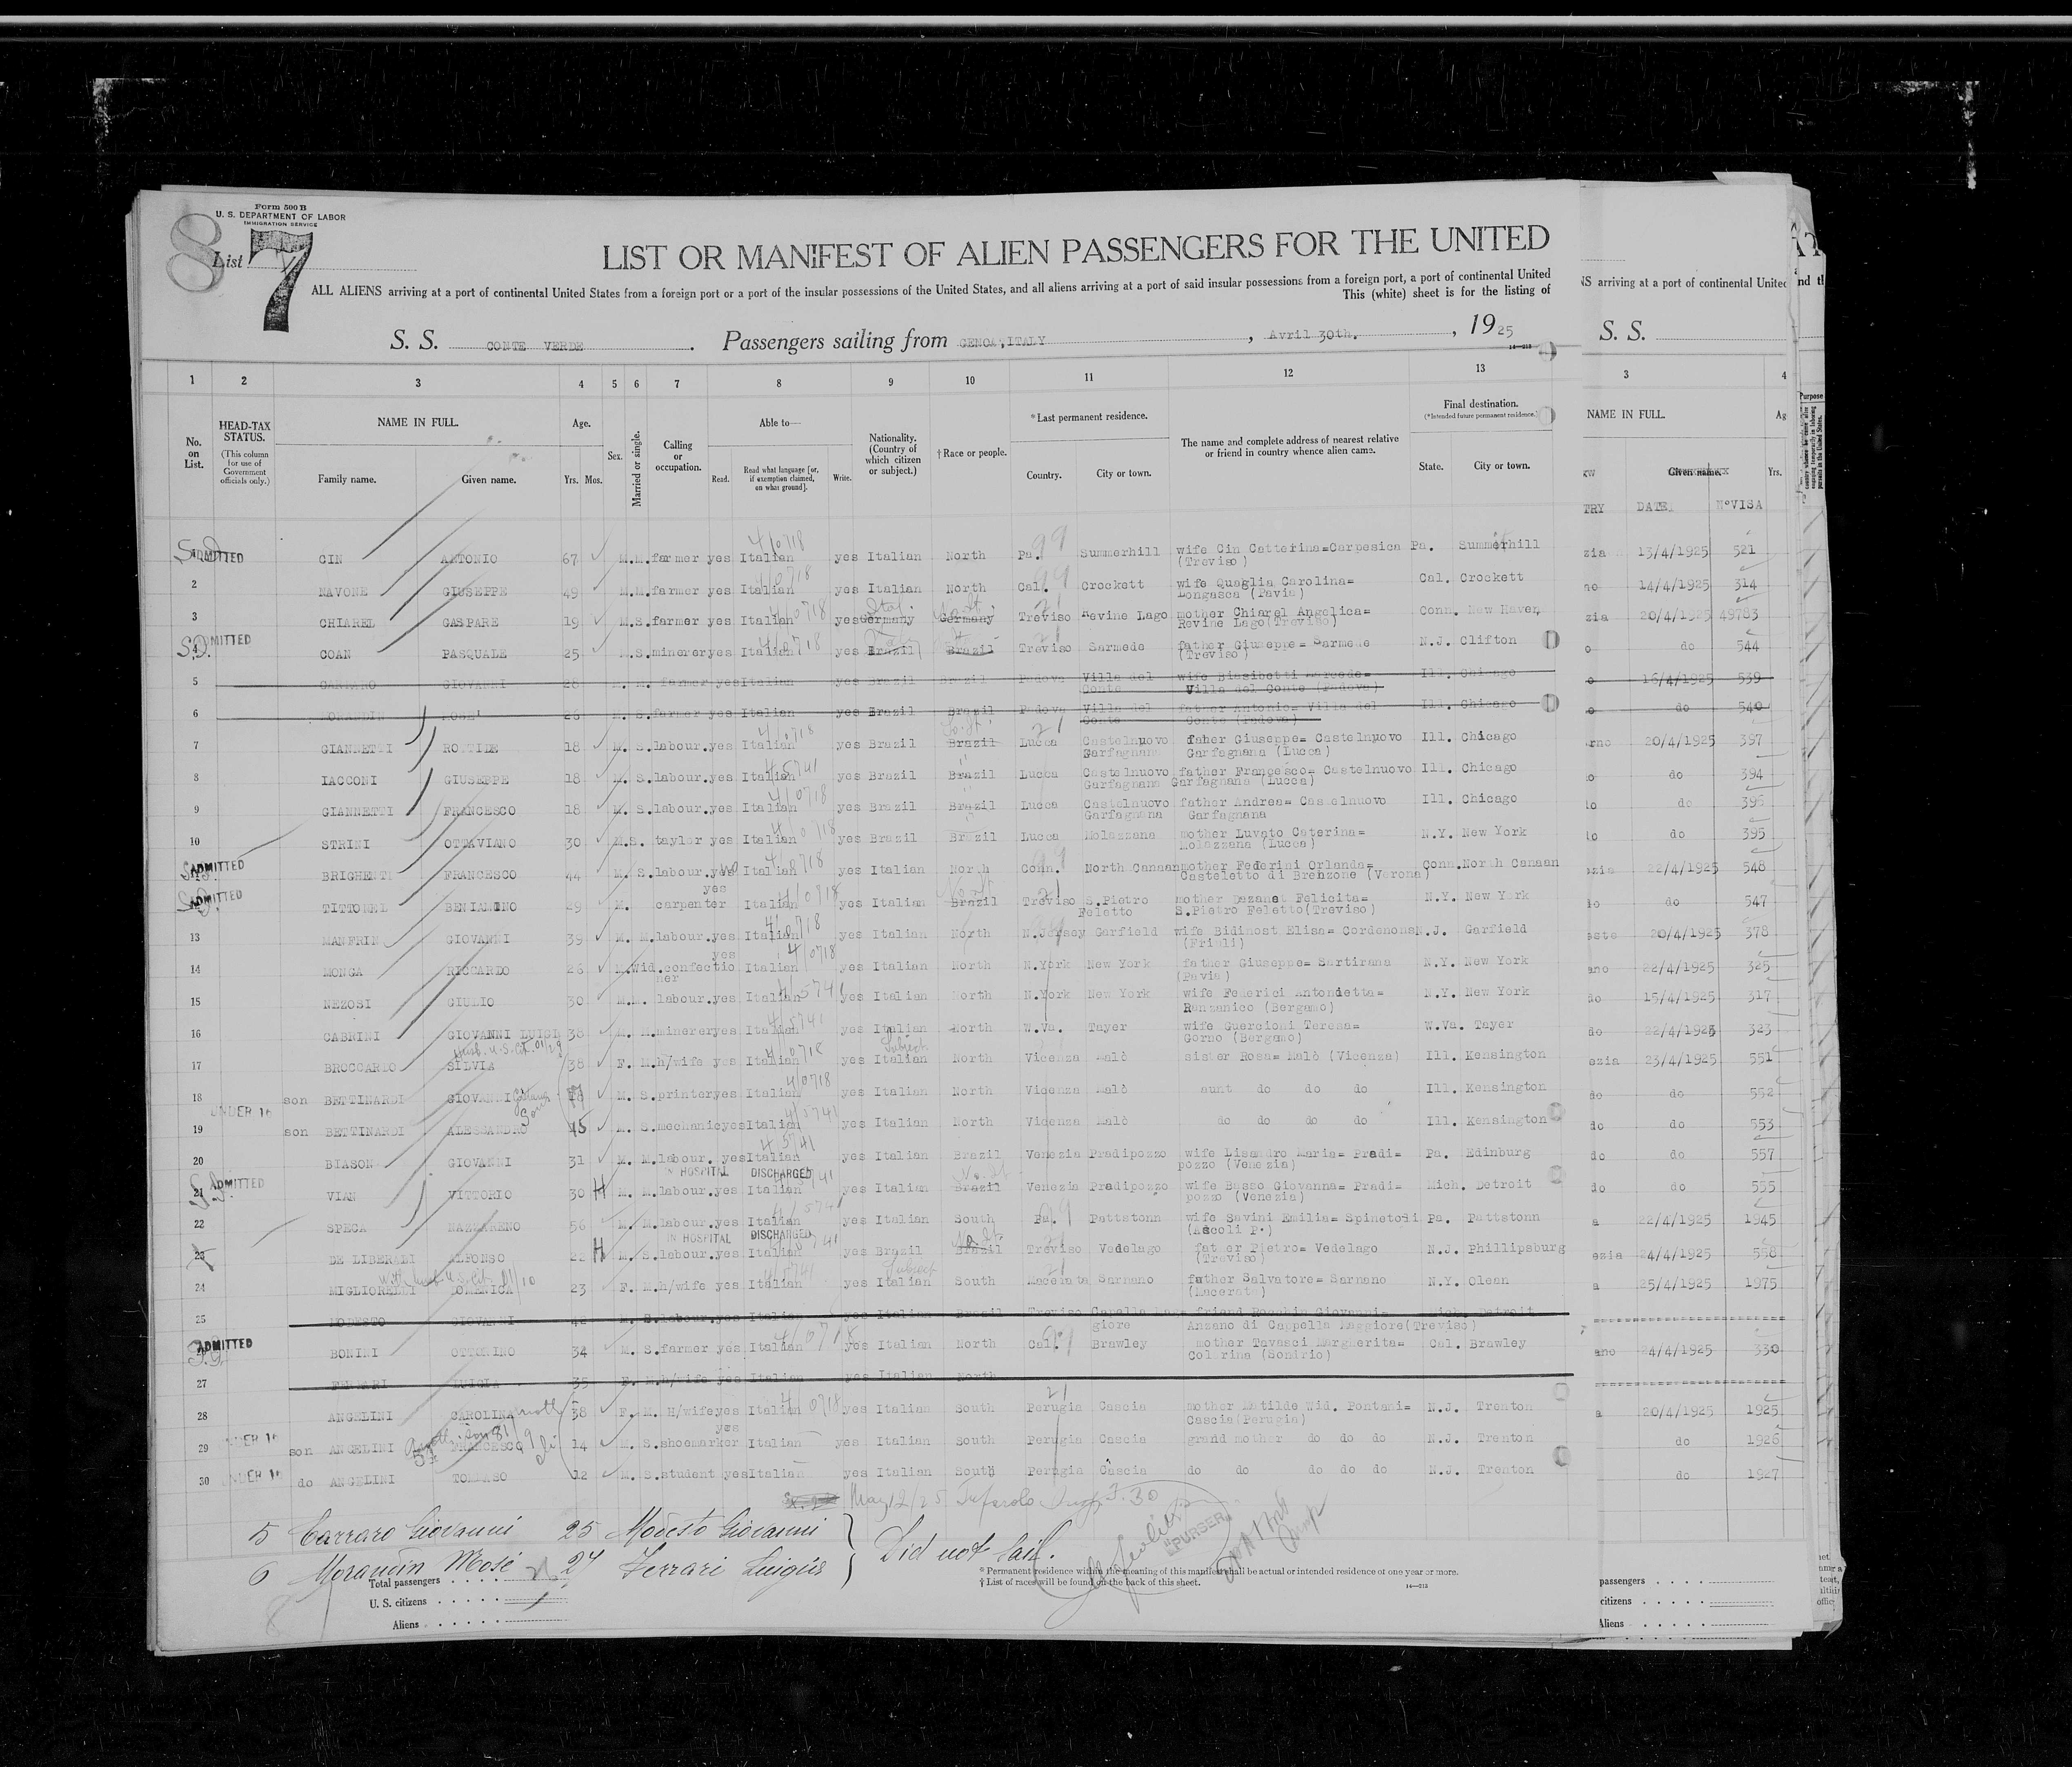 Form 500 B
U. S. DEPARTMENT OF LABOR
IMMIGRATION SERVICE
8 List 7
LIST OR MANIFEST OF ALIEN PASSENGERS FOR THE UNITED
ALL ALIENS arriving at a port of continental United States from a foreign port or a port of the insular possessions of the United States, and all aliens arriving at a port of said insular possessions from a foreign port, a port of continental United
This (white) sheet is for the listing of
NS arriving at a port of continental United
S. S. CONTE VERDE. Passengers sailing from GENOA, ITALY, Avril 30th., 1925
S. S.
1 2 3 4 5 6 7 8 9 10 11 12 13 3 4
No. on List.
HEAD-TAX STATUS.
(This column for use of Government officials only.)
NAME IN FULL.
Family name. Given name.
Age.
Yrs. Mos.
Sex.
Married or single.
Calling or occupation.
Able to—
Read. Read what language [or, if exemption claimed, on what ground]. Write.
Nationality. (Country of which citizen or subject.)
†Race or people.
*Last permanent residence.
Country. City or town.
The name and complete address of nearest relative or friend in country whence alien came.
Final destination.
(*Intended future permanent residence.)
State. City or town.
NAME IN FULL.
Given name. Yrs.
TRY DATE N°VISA
ADMITTED CIN ANTONIO 67 M. M. farmer yes Italian yes Italian North Pa. Summerhill wife Cin Catterina=Carpesica (Treviso) Pa. Summerhill zia 13/4/1925 521
2 NAVONE GIUSEPPE 49 M. M. farmer yes Italian yes Italian North Cal. Crockett wife Quaglia Carolina= Longasca (Pavia) Cal. Crockett no 14/4/1925 314
3 CHIAREL GASPARE 19 M. S. farmer yes Italian yes Germany Germany Treviso Revine Lago mother Chiarel Angelica= Revine Lago(Treviso) Conn. New Haven zia 20/4/1925 49783
4 COAN PASQUALE 25 M. S. minerer yes Italian yes Brazil Brazil Treviso Sarmede father Giuseppe= Sarmede (Treviso) N.J. Clifton o do 544
5 CARRARO GIOVANNI 28 M. M. farmer yes Italian yes Brazil Brazil Padova Villa del Conte wife Biasibetti Mercede= Villa del Conte (Padova) Ill. Chicago o 16/4/1925 539
6 MORANDIN MOSE' 26 M. S. farmer yes Italian yes Brazil Brazil Padova Villa del Conte father Antonio= Villa del Conte (Padova) Ill. Chicago o do 540
7 GIANNETTI ROTTIDE 18 M. S. labour. yes Italian yes Brazil Brazil Lucca Castelnuovo Garfagnana faher Giuseppe= Castelnuovo Garfagnana (Lucca) Ill. Chicago rno 20/4/1925 397
8 IACCONI GIUSEPPE 18 M. S. labour. yes Italian yes Brazil Brazil Lucca Castelnuovo Garfagnana father Francesco= Castelnuovo Garfagnana (Lucca) Ill. Chicago o do 394
9 GIANNETTI FRANCESCO 18 M. S. labour. yes Italian yes Brazil Brazil Lucca Castelnuovo Garfagnana father Andrea= Castelnuovo Garfagnana Ill. Chicago do do 396
10 STRINI OTTAVIANO 30 M. S. taylor yes Italian yes Brazil Brazil Lucca Molazzana mother Luvato Caterina= Molazzana (Lucca) N.Y. New York do do 395
ADMITTED BRIGHENTI FRANCESCO 44 M. S. labour. yes Italian yes Italian North Conn. North Canaan mother Federini Orlanda= Casteletto di Brenzone (Verona) Conn. North Canaan ezia 22/4/1925 548
ADMITTED TITTONEL BENIAMINO 29 M. carpenter yes Italian yes Italian Brazil Treviso S.Pietro Feletto mother Dezanet Felicita= S.Pietro Feletto(Treviso) N.Y. New York do do 547
13 MANFRIN GIOVANNI 39 M. M. labour. yes Italian yes Italian North N.Jersey Garfield wife Bidinost Elisa= Cordenons (Friuli) N.J. Garfield este 20/4/1925 378
14 MONGA RICCARDO 28 M. Wid. confectioner yes Italian yes Italian North N.York New York father Giuseppe= Sartirana (Pavia) N.Y. New York ano 22/4/1925 325
15 NEZOSI GIULIO 30 M. M. labour. yes Italian yes Italian North N.York New York wife Federici Antonietta= Ranzanico (Bergamo) N.Y. New York do 15/4/1925 317
16 CABRINI GIOVANNI LUIGI 38 M. M. minerer yes Italian yes Italian North W.Va. Tayer wife Guercioni Teresa= Gorno (Bergamo) W.Va. Tayer do 22/4/1925 323
17 BROCCARDO SILVIA 38 F. M. h/wife yes Italian yes Italian North Vicenza Malò sister Rosa= Malò (Vicenza) Ill. Kensington ezia 23/4/1925 551
18 son BETTINARDI GIOVANNI M. S. printer yes Italian yes Italian North Vicenza Malò aunt do do do Ill. Kensington do do 552
19 UNDER 16 son BETTINARDI ALESSANDRO 15 M. S. mechanic yes Italian yes Italian North Vicenza Malò do do do do Ill. Kensington do do 553
20 BIASON GIOVANNI 31 M. M. labour. yes Italian yes Italian Brazil Venezia Pradipozzo wife Lisandro Maria= Pradipozzo (Venezia) Pa. Edinburg do do 557
IN HOSPITAL DISCHARGED
21 ADMITTED VIAN VITTORIO 30 H M. M. labour. yes Italian yes Italian Brazil Venezia Pradipozzo wife Basso Giovanna= Pradipozzo (Venezia) Mich. Detroit do do 555
22 SPECA NAZZARENO 56 M. M. labour. yes Italian yes Italian South Pa. Pattstonn wife Savini Emilia= Spinetoli (Ascoli P.) Pa. Pattstonn a 22/4/1925 1945
IN HOSPITAL DISCHARGED
23 DE LIBERALI ALFONSO 22 H M. S. labour. yes Italian yes Brazil Brazil Treviso Vedelago father Pietro= Vedelago (Treviso) N.J. Phillipsburg ezia 24/4/1925 558
24 MIGLIORELLI DOMENICA 23 F. M. h/wife yes Italian yes Italian South Macerata Sarnano father Salvatore= Sarnano (Macerata) N.Y. Olean a 25/4/1925 1975
25 MODESTO GIOVANNI 42 M. S. labour. yes Italian yes Italian Brazil Treviso Capella Maggiore friend Giovanni= Anzano di Cappella Maggiore(Treviso) Mich. Detroit
ADMITTED BONINI OTTORINO 34 M. S. farmer yes Italian yes Italian North Cal. Brawley mother Tavasci Margherita= Colorina (Sondrio) Cal. Brawley ano 24/4/1925 330
27 FERRARI LUIGIA 35 F. M. h/wife yes Italian yes Italian North
28 ANGELINI CAROLINA 38 F. M. H/wife yes Italian yes Italian South Perugia Cascia mother Matilde Wid. Pontani= Cascia(Perugia) N.J. Trenton a 20/4/1925 1925
29 UNDER 16 son ANGELINI FRANCESCO 14 M. S. shoemarker yes Italian yes Italian South Perugia Cascia grand mother do do do N.J. Trenton do 1926
30 UNDER 16 do ANGELINI TOMMASO 12 M. S. student yes Italian yes Italian South Perugia Cascia do do do do do N.J. Trenton do 1927
May 12/25
5 Carraro Giovanni 25 Modesto Giovanni
6 Morandin Mosé 27 Ferrari Luigia
Did not sail.
PURSER
Total passengers
U. S. citizens
Aliens
* Permanent residence within the meaning of this manifest shall be actual or intended residence of one year or more.
† List of races will be found on the back of this sheet.
passengers
citizens
Aliens